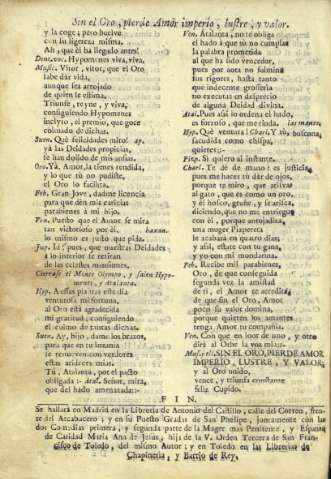 Sin el Oro, pierde Amor imperio, lustre, y valor.
y la coge; pero buelve
con su ligereza misma.
Ah, que él ha llegado antes!
Dent. voc. Hypomenes viva, viva.
Music. Vitor, vitor, que el Oro
sabe dàr vida,
aunque sea arrojado
de quien le estima.
Triunfe, reyne, y viva,
consiguiendo Hypomenes
inclyto, el premio, que goce
colmado de dichas.
Suen. Què felicidades mias! ay
yà las Deidades propicias,
se han dolido de mis ansias.
Oro. Yà, Amor, la tienes rendida,
y lo que tù no pudiste,
el Oro lo facilita.
Feb. Gran Jove, dadme licencia
para que dèn mis caricias
parabienes à mi hijo.
Ven. Puesto que el Amor se mira
tan victorioso por èl,
lo mismo es justo que pida.
Jup. Id pues, que nuestras Deidades
à lo interior se retiran
de las celestes mansiones.
Cierrase el Monte Olympo, y salen Hypomenes,
y Atalanta.
Hyp. A essas plantas este dia
venturosa mi fortuna,
al Oro està agradecida
mi gratitud consiguiendo
el colmo de tantas dichas.
Suen. Ay, hijo, dame los brazos,
para que en tu lozania
se renueven con verdores
estas caducas
Tù, Atalanta, por el pacto
obligada:- Atal. Señor, mira,
que del hado amenazada:-
Ven. Atalanta, no te obliga
el hado à que tù no cumplas
la palabra prometida
al que ha sido vencedor,
pues por aora no fulmina
sus rigores, hasta tanto
que indecente grosseria
no executas en desprecio
de alguna Deidad divina.
Atal. Pues assi lo ordena el hado,
es forzoso, que me rinda. las manos.
Hyp. Què ventura! Charl. Y tù, buscona,
sacudida como chispa,
quieres:-
Finp. Si quiero al instante.
Charl. Te dè de mano es justicia,
pues me haces tù dàr de ojos,
porque te miro, que activas
al gato, que es como un oro,
y èl hosco, gruñe, y se arisca,
diciendo, que no me entregue
con èl, porque antojadas,
una muger Piapereta
le acabarà en quatro dias,
y assi, estate con tu gana,
y yo con mi mondarina.
Feb. Recibe mil parabienes,
Oro, de que conseguida
segunda vez la amistad
de ti, el Amor te acredita,
de que sin el Oro, Amor
poco su valor domina,
porque quietos los amantes
tenga Amor tu compañia.
Ven. Con que en loor de uno, y otro
dirà al Orbe la voz mia:-
Music. y el. SIN EL ORO, PIERDE AMOR
IMPERIO, LUSTRE, Y VALOR;
y al Oro unido,
vence, y triunfa constante
feliz Cupido.
FIN.
Se hallarà en Madrid en la Libreria de Antonio del Castillo, calle del Correo, frente
del Arcabucero; y en su Puesto Gradas de San Phelipe, juntamente con las
dos Comedias primera, y segunda parte de la Magre mas Penitente, y Espanto
de Caridad Maria Ana de Jesus, hija de la V. Orden Tercera de San Francisco
de Toledo, del mismo Autor; y en Toledo en las Librerias de
Chapineria, y Barrio de Rey.